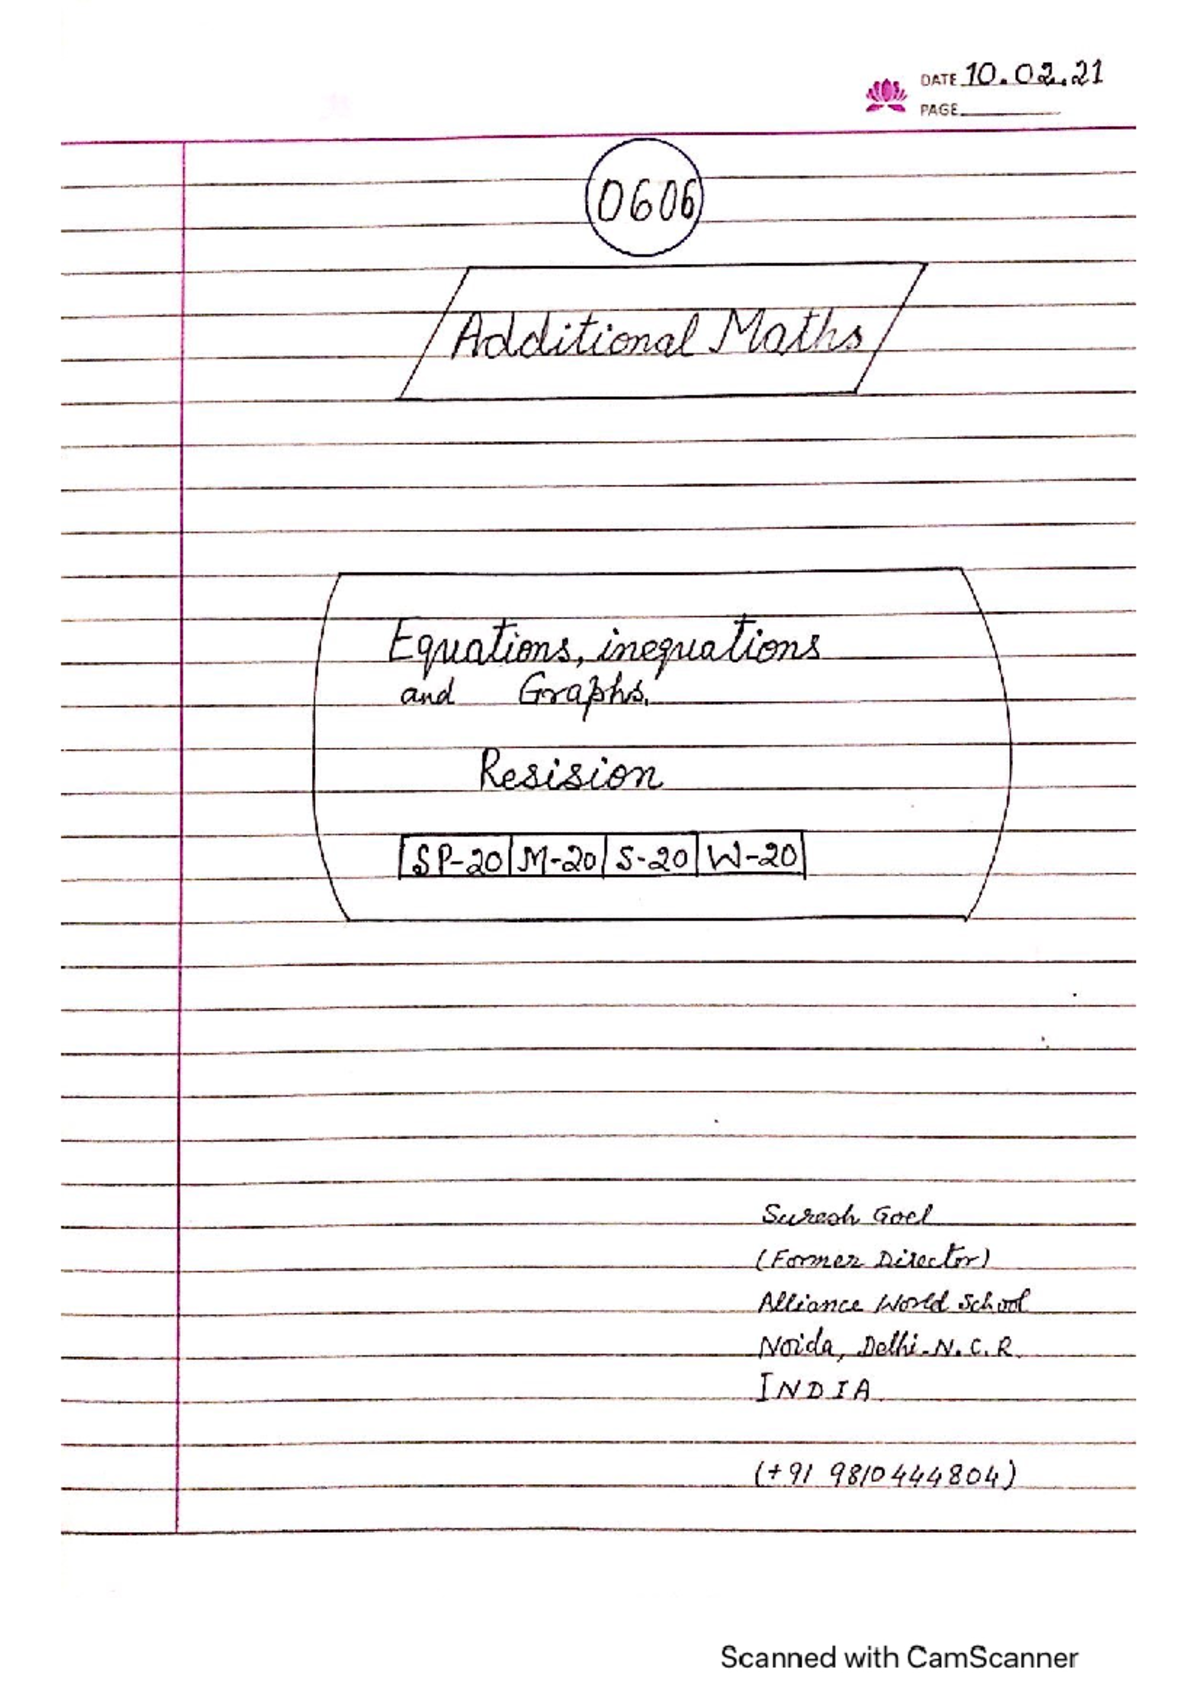 DATE 10.02.21
PAGE
0606
Additional Maths
Equations, inequations
and Graphs.
Resision
SP-20 M-20 S-20 W-20
Suresh Goel
(Former Director)
Alliance World School
Noida, Delhi-N.C.R.
INDIA
(+91 9810444804)
Scanned with CamScanner